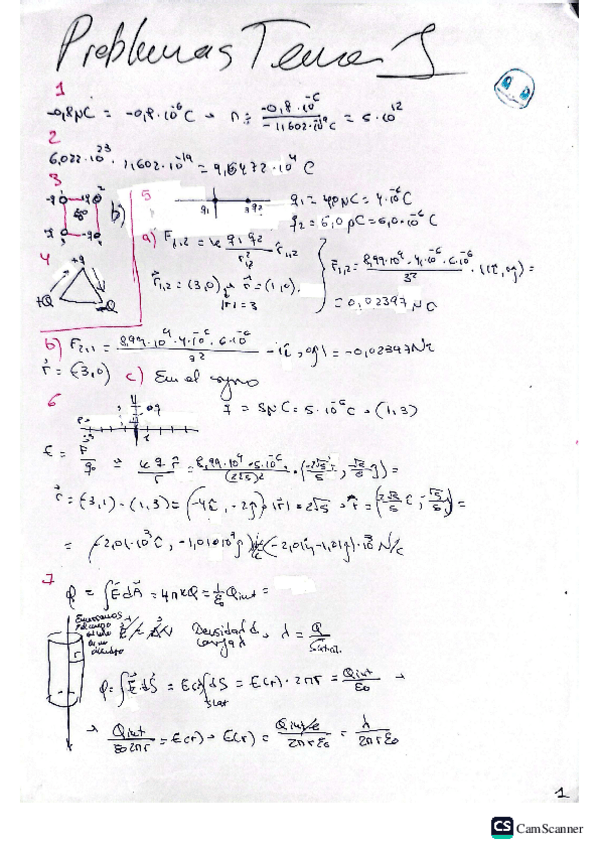 Problemas Tema 1
1
-0,8μC = -0,8·10^-6 C → n = -0,8·10^-6 / -1,1602·10^-19 C = 5·10^12
2
6,022·10^23 · 1,1602·10^-19 = 9,6472·10^4 C
3
b)
4
+q
+Q -Q
5
q1 3 q2
q1 = 40μC = 4·10^-6 C
q2 = 6,0μC = 6,0·10^-6 C
a) F1,2 = k q1 q2 / r²1,2 · r̂1,2
r⃗1,2 = (3,0) → r̂ = (1,0)
|r| = 3
F⃗1,2 = 8,99·10^9 · 4·10^-6 · 6·10^-6 / 3² · (1î, 0ĵ) =
= 0,02397 N
b) F2,1 = 8,99·10^9 · 4·10^-6 · 6·10^-6 / 3² · -1î, 0ĵ = -0,02397 N
r⃗ = (-3,0) c) En el signo
6
q = 5μC = 5·10^-6 C → (1,3)
E = F/q0 = k q r̂ / r = 8,99·10^9 · 5·10^-6 / (2√5)² · (-2√5/5 î, -√5/5 ĵ) =
r⃗ = (-3,1) - (1,3) = (-4î, -2ĵ) |r| = 2√5
= (-2,01·10^3 î, -1,01·10^3 ĵ) (-2,01î, -1,01ĵ)·10^3 N/C
7
φ = ∫E⃗ dA⃗ = 4πkQ = 1/ε0 Qint =
Densidad de carga λ = Q /
φ = ∫E⃗ dS⃗ = E(r) ∫dS = E(r) · 2πr = Qint / ε0 →
→ Qint / ε0 2πr = E(r) → E(r) = Qint/ℓ / 2πrε0 = λ / 2πrε0
1
CS CamScanner